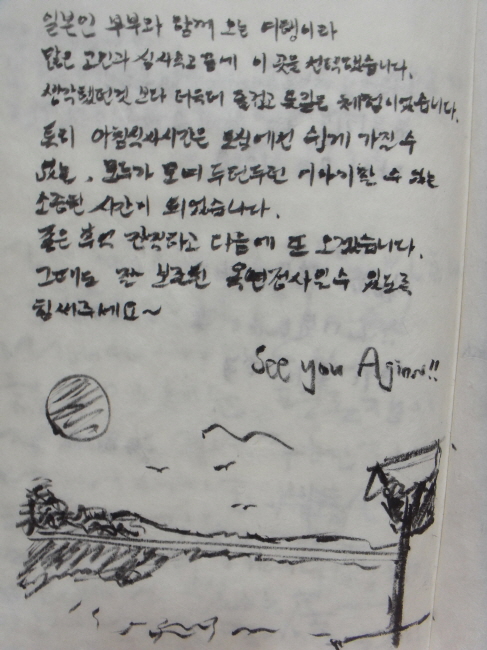 일본인 부부와 함께 오는 여행이라
많은 고민과 심사숙고 끝에 이 곳을 선택했습니다.
생각했던것 보다 더욱더 즐겁고 뜻깊은 체험이었습니다.
특히 아침식사시간은 도심에선 쉽게 가질 수
없는, 모두가 모여 두런두런 이야기할 수 있는
소중한 시간이 되었습니다.
좋은 추억 간직하고 다음에 또 오겠습니다.
그때도 잘 보존된 옥연정사일수 있도록
힘써주세요~
See you Again!!